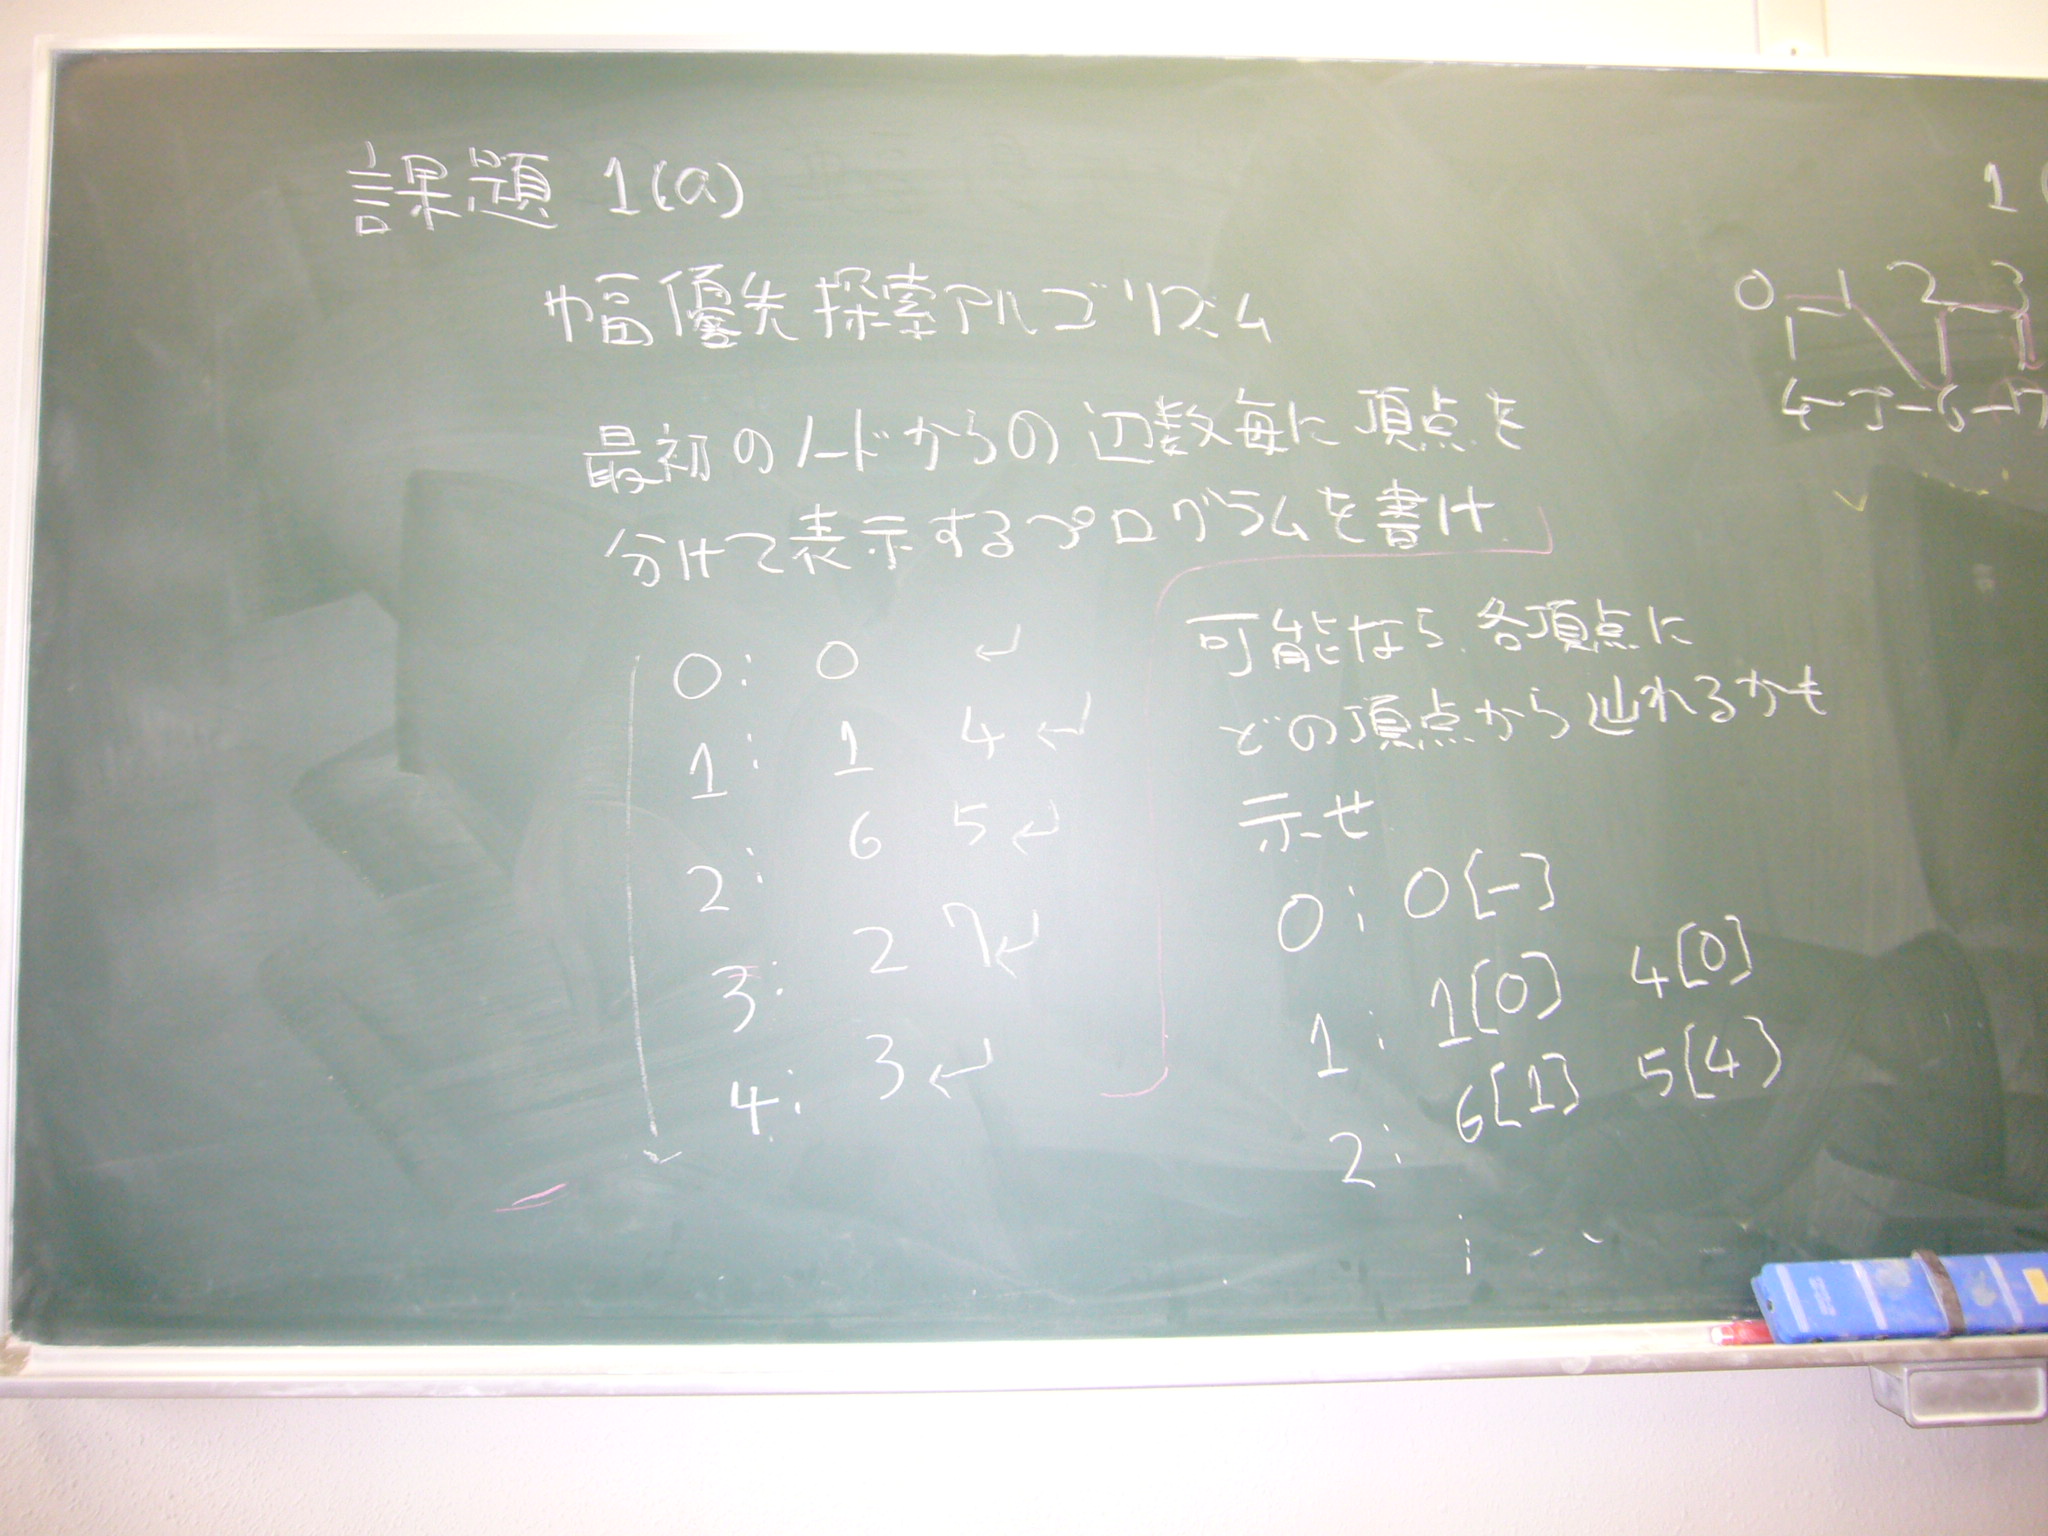 課題 1(a)
幅優先探索アルゴリズム
最初のノードからの辺数毎に頂点を
分けて表示するプログラムを書け.
0: 0 ↵
1: 1 4 ↵
2: 6 5 ↵
3: 2 7 ↵
4: 3 ↵
可能なら、各頂点に
どの頂点から辿れるかも
示せ
0: 0[-]
1: 1[0] 4[0]
2: 6[1] 5[4]
1(
0-1 2-3
4-5-6-7